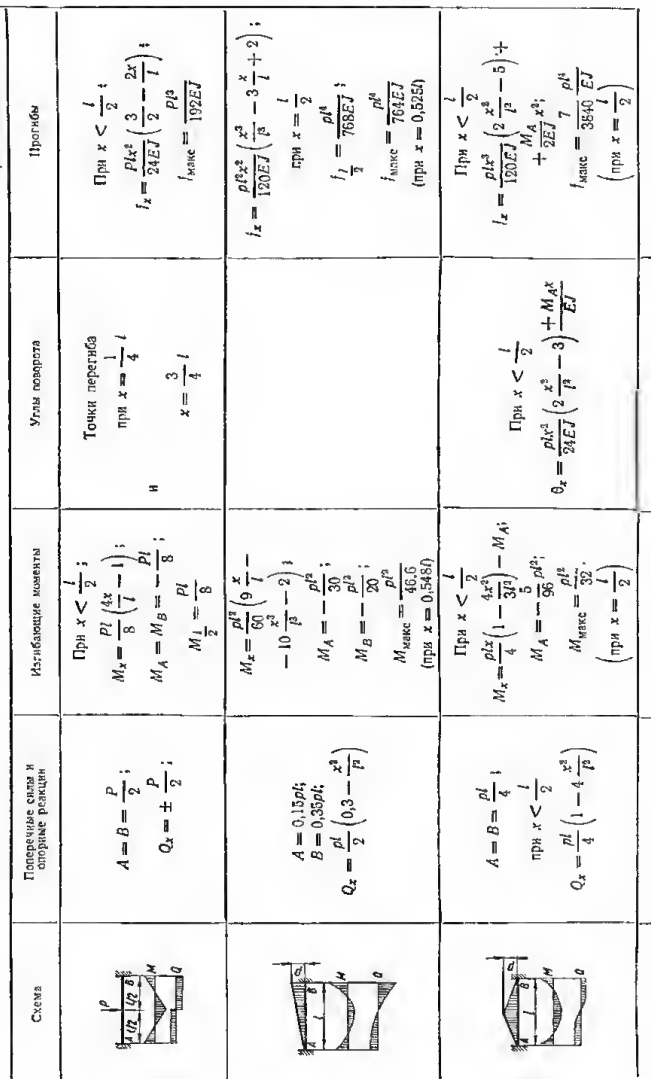 Схема
Поперечные силы и
опорные реакции
Изгибающие моменты
Углы поворота
Прогибы
P
A l/2 l/2 B
M
Q
A = B = P/2 ;
Q_x = ± P/2 ;
При x < l/2 ;
M_x = Pl/8 (4x/l − 1) ;
M_A = M_B = − Pl/8 ;
M_{l/2} = Pl/8
Точки перегиба
при x = 1/4 l
и x = 3/4 l
При x < l/2 ;
f_x = Plx²/24EJ (3/2 − 2x/l) ;
f_макс = Pl³/192EJ
A B
l
M
Q
A = 0,15pl;
B = 0,35pl;
Q_x = pl/2 (0,3 − x²/l²)
M_x = pl²/60 (9 x/l −
− 10 x³/l³ − 2) ;
M_A = − pl²/30 ;
M_B = − pl²/20 ;
M_макс = pl²/46,6
(при x = 0,548l)
f_x = pl²x²/120EJ (x³/l³ − 3 x/l + 2) ;
при x = l/2
f_{l/2} = pl⁴/768EJ ;
f_макс = pl⁴/764EJ
(при x = 0,525l)
A B
l
M
Q
A = B = pl/4 ;
при x < l/2
Q_x = pl/4 (1 − 4 x²/l²)
При x < l/2
M_x = plx/4 (1 − 4x²/3l²) − M_A;
M_A = − 5/96 pl²;
M_макс = pl²/32 .
(при x = l/2)
При x < l/2
θ_x = plx²/24EJ (2 x²/l² − 3) + M_A x/EJ
При x < l/2
f_x = plx³/120EJ (2 x²/l² − 5) +
+ M_A/2EJ x²;
f_макс = 7/3840 pl⁴/EJ
(при x = l/2)